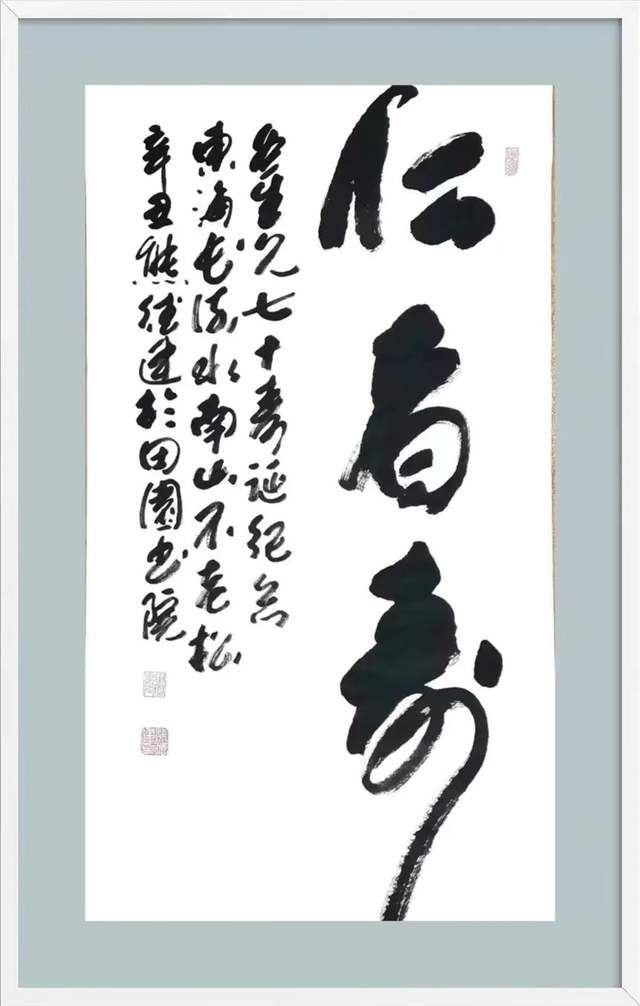 仁者寿
生兄七十寿诞纪念
东海长流水南山不老松
辛丑熊德建於田園书院